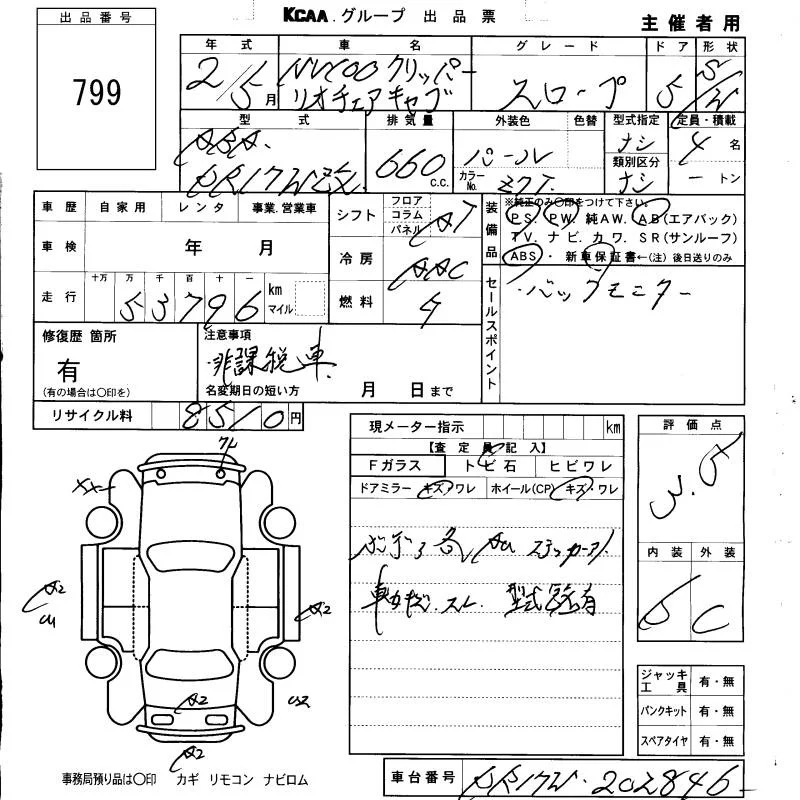 KCAA.グループ 出品票
主催者用
出品番号
799
年式 車名 グレード ドア 形状
2/5月 NV100クリッパー リオチェアキャブ スロープ 5 S/W
型式 排気量 外装色 色替 型式指定 定員・積載
ABA. DR17W改 660 C.C. パール ナシ 4名
カラーNo. ZVT. 類別区分 ナシ ートン
車歴 自家用 レンタ 事業.営業車
シフト フロア コラム パネル AT
装備品 ※純正のみ〇印をつけて下さい。
PS PW 純AW. AB(エアバック)
TV. ナビ. カワ. SR(サンルーフ)
ABS・ 新車保証書←(注) 後日送りのみ
車検 年 月
冷房 AAC
走行 十万 万 千 百 十 一
53796 km マイル
燃料 ガ
セールスポイント
バックモニター
修復歴 箇所
有
(有の場合は〇印を)
注意事項
非課税車.
名変期日の短い方 月 日まで
リサイクル料 8510円
現メーター指示 km
【査定員記入】
Fガラス トビ石 ヒビワレ
ドアミラー キズ・ワレ ホイール(CP) キズ・ワレ
ボディ各AU ステッカーアト.
車内キズ.スレ. 型式
評価点
3.5
内装 外装
C
ワレ
A2
A2
A2
A2
ジャッキ工具 有・無
パンクキット 有・無
スペアタイヤ 有・無
事務局預り品は〇印 カギ リモコン ナビロム
車台番号 DR17W-202846